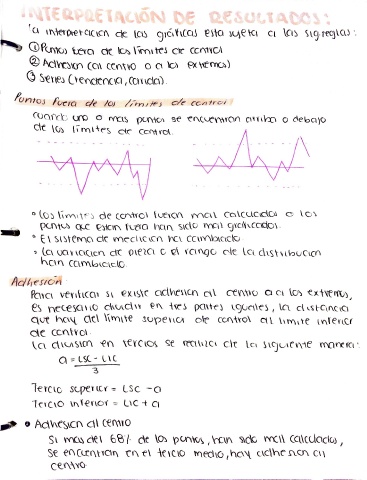 INTERPRETACIÓN DE RESULTADOS:
La interpretacion de las gráficas esta sujeta a las sig reglas:
① Puntos fuera de los límites de control
② Adhesion (al centro o a los extremos)
③ Series (tendencia, corrida).
Puntos fuera de los límites de control
cuando uno o mas puntos se encuentran arriba o debajo
de los límites de control.
• Los límites de control fueron mal calculados o los
puntos que estan fuera han sido mal graficados.
• El sistema de medicion ha cambiado
• La variacion de pieza o el rango de la distribucion
han cambiado.
Adhesión:
Para verificar si existe adhesion al centro o a los extremos,
es necesario dividir en tres partes iguales, la distancia
que hay del límite superior de control al límite inferior
de control.
La division en tercios se realiza de la siguiente manera:
a = LSC - LIC
3
Tercio superior = LSC - a
Tercio inferior = LIC + a
• Adhesion al centro
Si mas del 68% de los puntos, han sido mal calculados,
se encuentran en el tercio medio, hay adhesion al
centro.